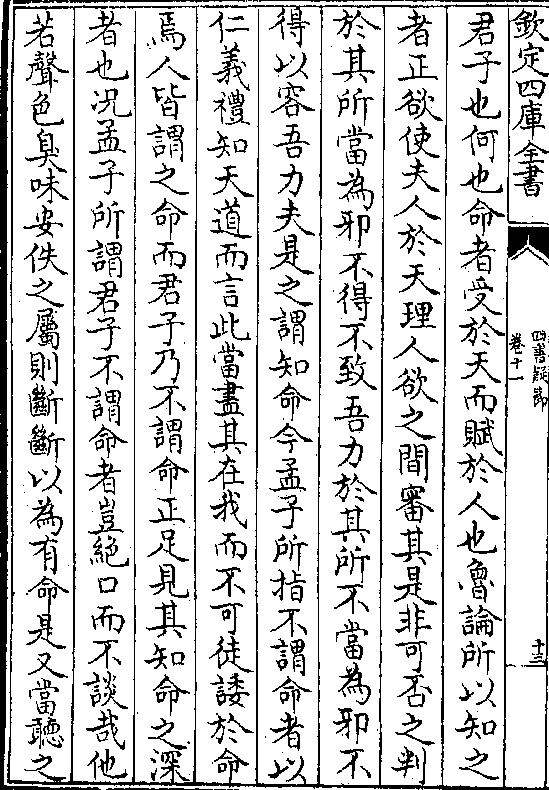 欽定四庫全書
四書疑節
卷十一
十三
君子也何也命者受於天而賦於人也魯論所以知之
者正欲使夫人於天理人欲之間審其是非可否之判
於其所當為邪不得不致吾力於其所不當為邪不
得以容吾力夫是之謂知命今孟子所指不謂命者以
仁義禮知天道而言此當盡其在我而不可徒諉於命
焉人皆謂之命而君子乃不謂命正足見其知命之深
者也况孟子所謂君子不謂命者豈絕口而不談哉他
若聲色臭味安佚之屬則斷斷以為有命是又當聽之